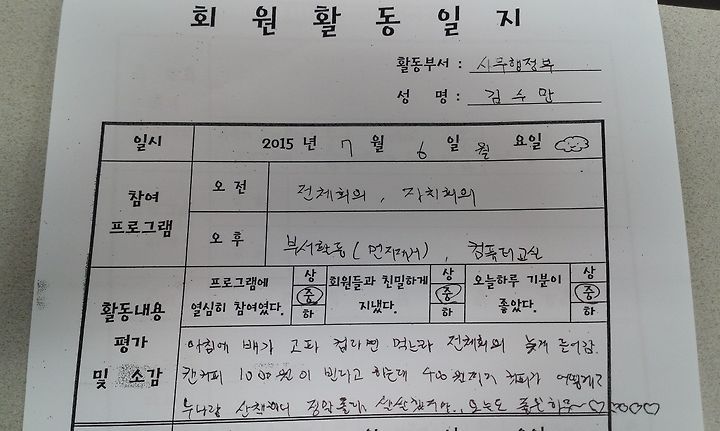 회원활동일지
활동부서 : 사무행정부
성 명 : 김수만
일시 2015 년 7 월 6 일 월 요일
참여 프로그램
오 전 전체회의, 자치회의
오 후 부서활동 (먼지제거), 컴퓨터교실
활동내용 평가 및 소감
프로그램에 열심히 참여였다. 상 중 하
회원들과 친밀하게 지냈다. 상 중 하
오늘하루 기분이 좋았다. 상 중 하
아침에 배가 고파 컵라면 먹는라 전체회의 늦게 들어감.
캔커피 1000원이 빈다고 하는데 400원짜리 커피가 어떻게?
누나랑 산책하니 정말 오늘도 좋은하루~♡♡○○♡